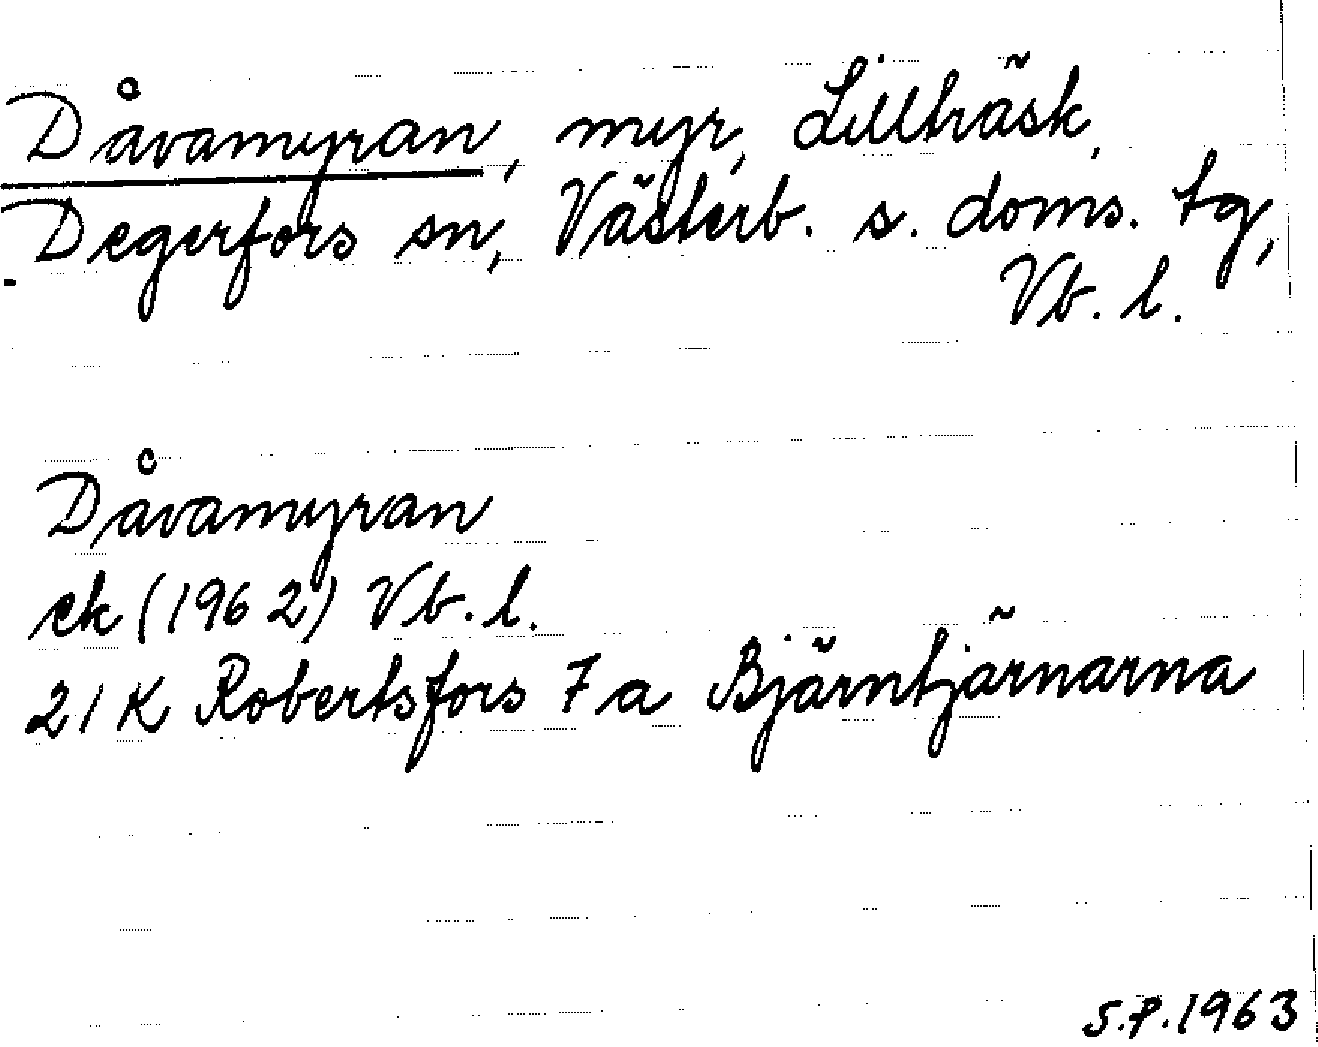 Dåvamyran, myr, Lillträsk,
Degerfors sn, Västerb. s. doms. tg,
Vb. l.
Dåvamyran
ek (1962) Vb. l.
21 K Robertsfors 7 a Bjärntjärnarna
S.P. 1963